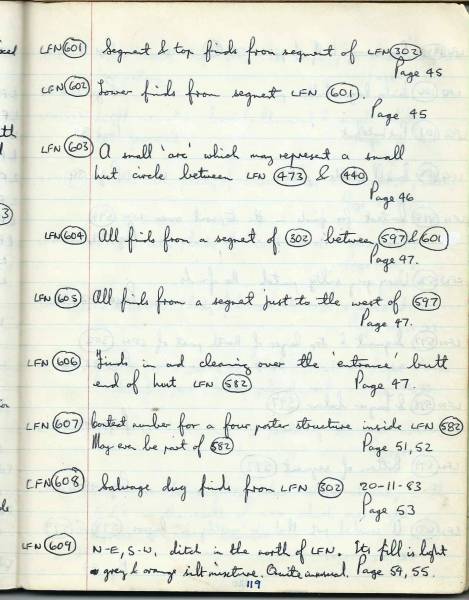 LFN 601 Segment & top finds from segment of LFN 302
Page 45
LFN 602 Lower finds from segment LFN 601.
Page 45
LFN 603 A small 'arc' which may represent a small
hut circle between LFN 473 & 440
Page 46
LFN 604 All finds from a segment of 302 between 597 & 601
Page 47.
LFN 605 All finds from a segment just to the west of 597
Page 47.
LFN 606 Finds in and cleaning over the 'entrance' butt
end of hut LFN 582 Page 47.
LFN 607 Context number for a four poster structure inside LFN 582
May even be part of 582 Page 51, 52
LFN 608 Salvage dug finds from LFN 302 20-11-83
Page 53
LFN 609 N-E, S-W, ditch in the north of LFN. Its fill is light
grey & orange silt mixture. Quite unusual. Page 54, 55.
119